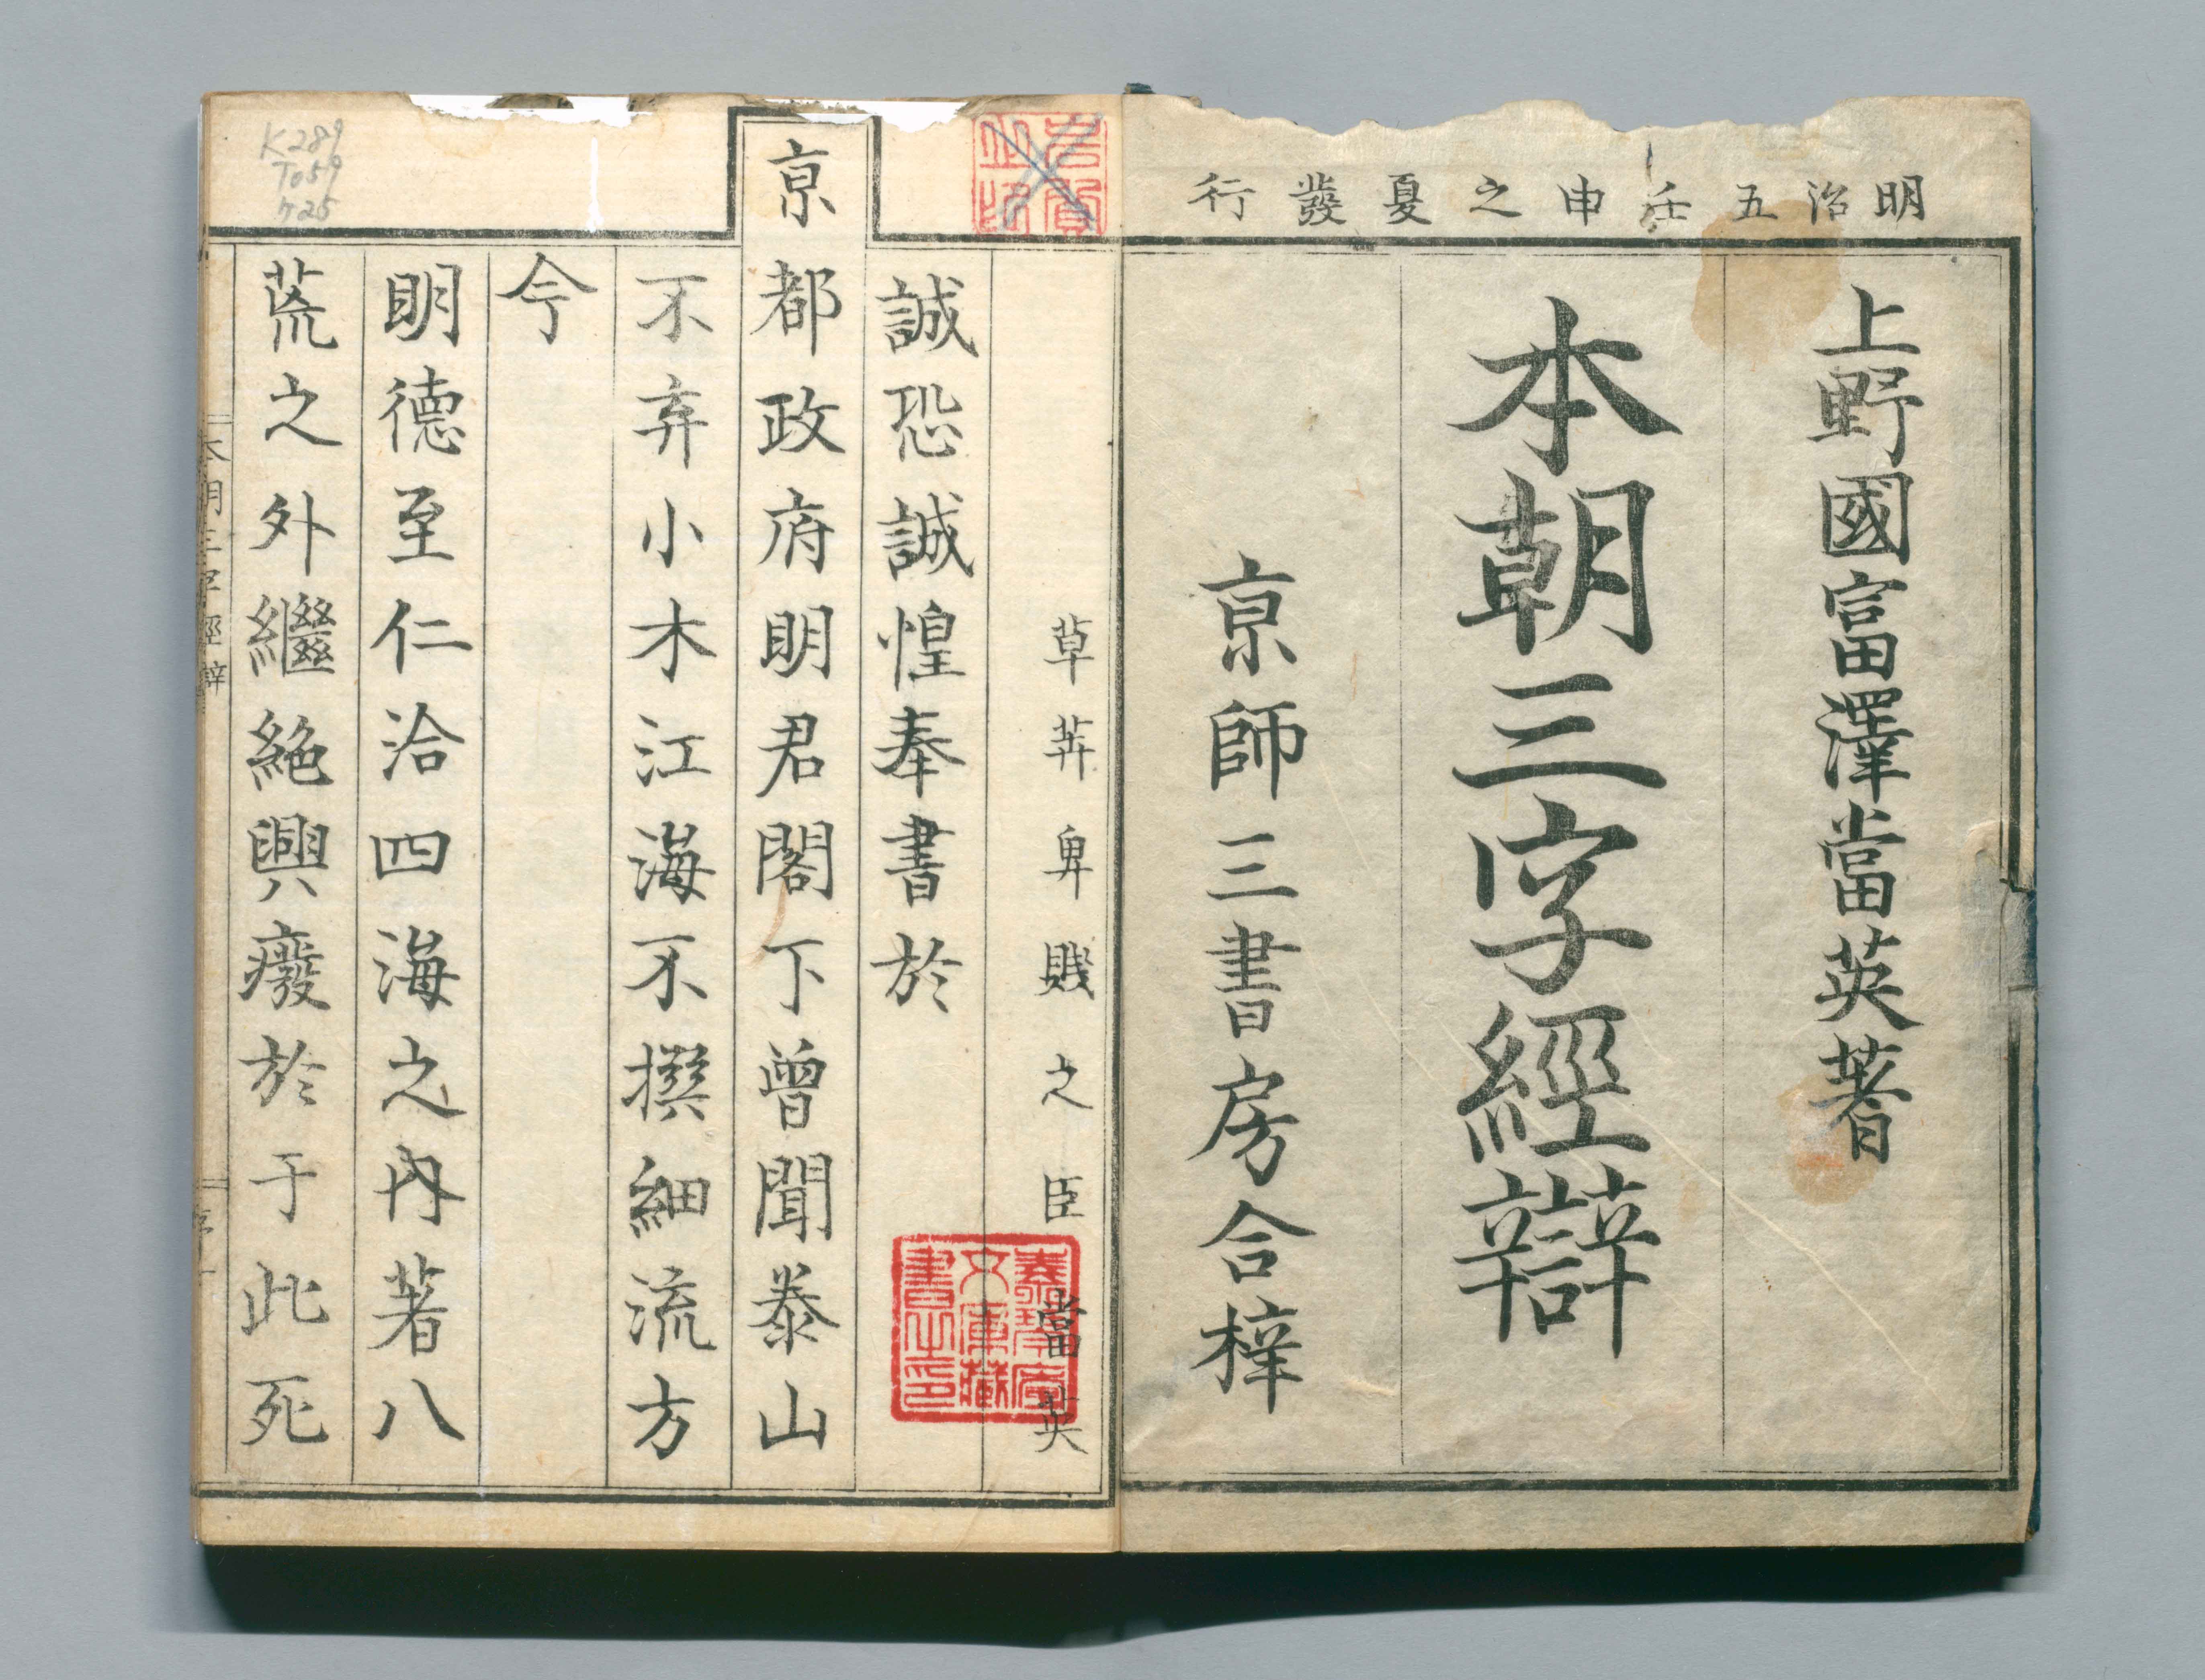 明治五壬申之夏發行
上野國富澤當英著
本朝三字經辯
京師三書房合梓
草莽卑賤之臣當英
誠恐誠惶奉書於
京都政府明君閣下曾聞泰山
不弃小木江海不撰細流方
今
明德至仁洽四海之内著八
荒之外繼絶興癈於于此死
本朝三字經辯
K289
To59
725